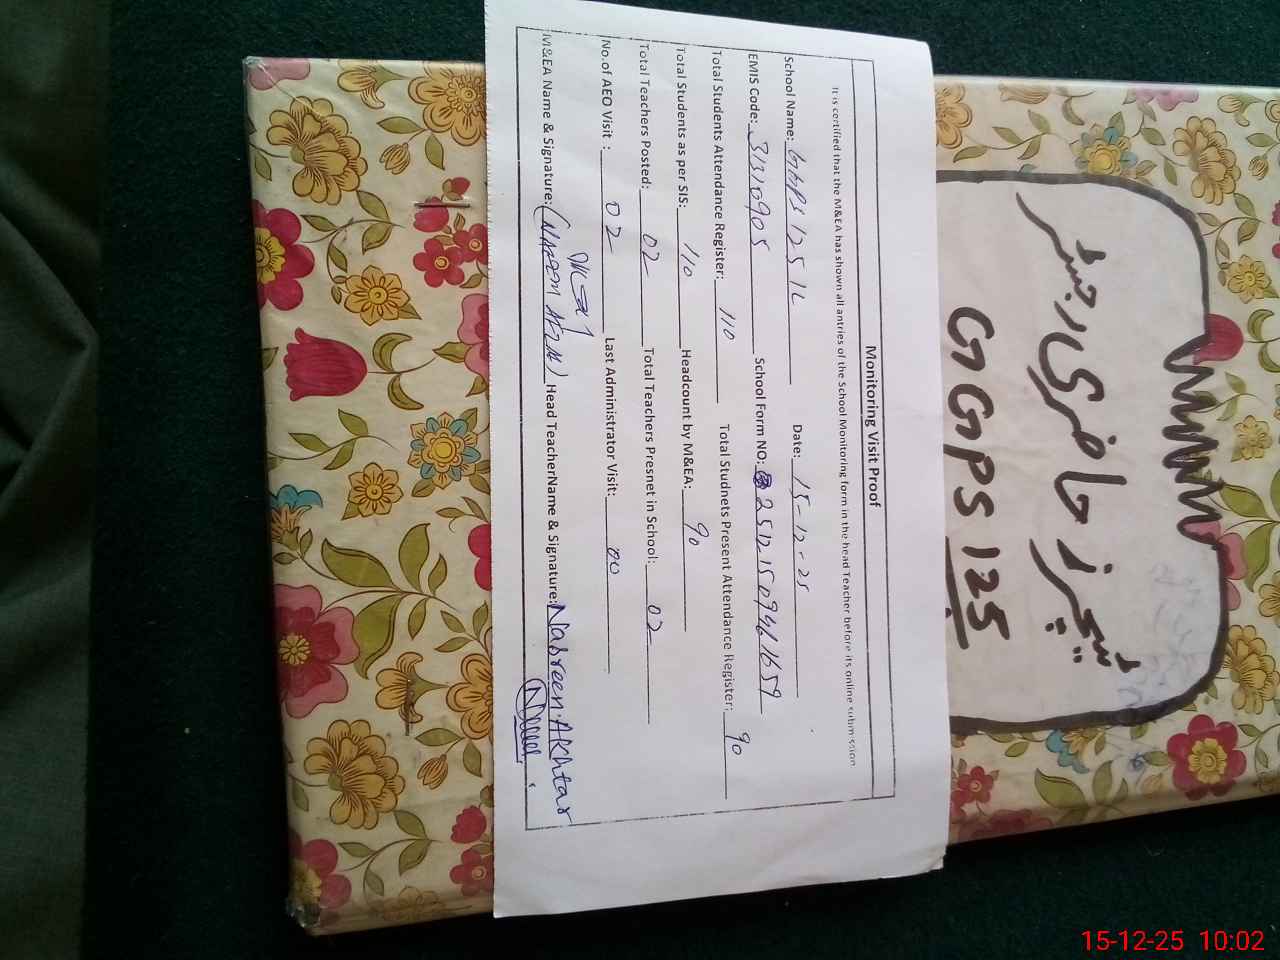 Monitoring Visit Proof
It is certified that the M&EA has shown all antries of the School Monitoring form in the head Teacher before its online submission
School Name: GGPS 125 1L Date: 15-12-25
EMIS Code: 31310905 School Form NO: 25121509461659
Total Students Attendance Register: 110 Total Studnets Present Attendance Register: 90
Total Students as per SIS: 110 Headcount by M&EA: 90
Total Teachers Posted: 02 Total Teachers Presnet in School: 02
No.of AEO Visit : 02 Last Administrator Visit: 00
M&EA Name & Signature: Head TeacherName & Signature: Nasreen Akhtar
ٹیچرز حاضری رجسٹر
GGPS 125
15-12-25 10:02